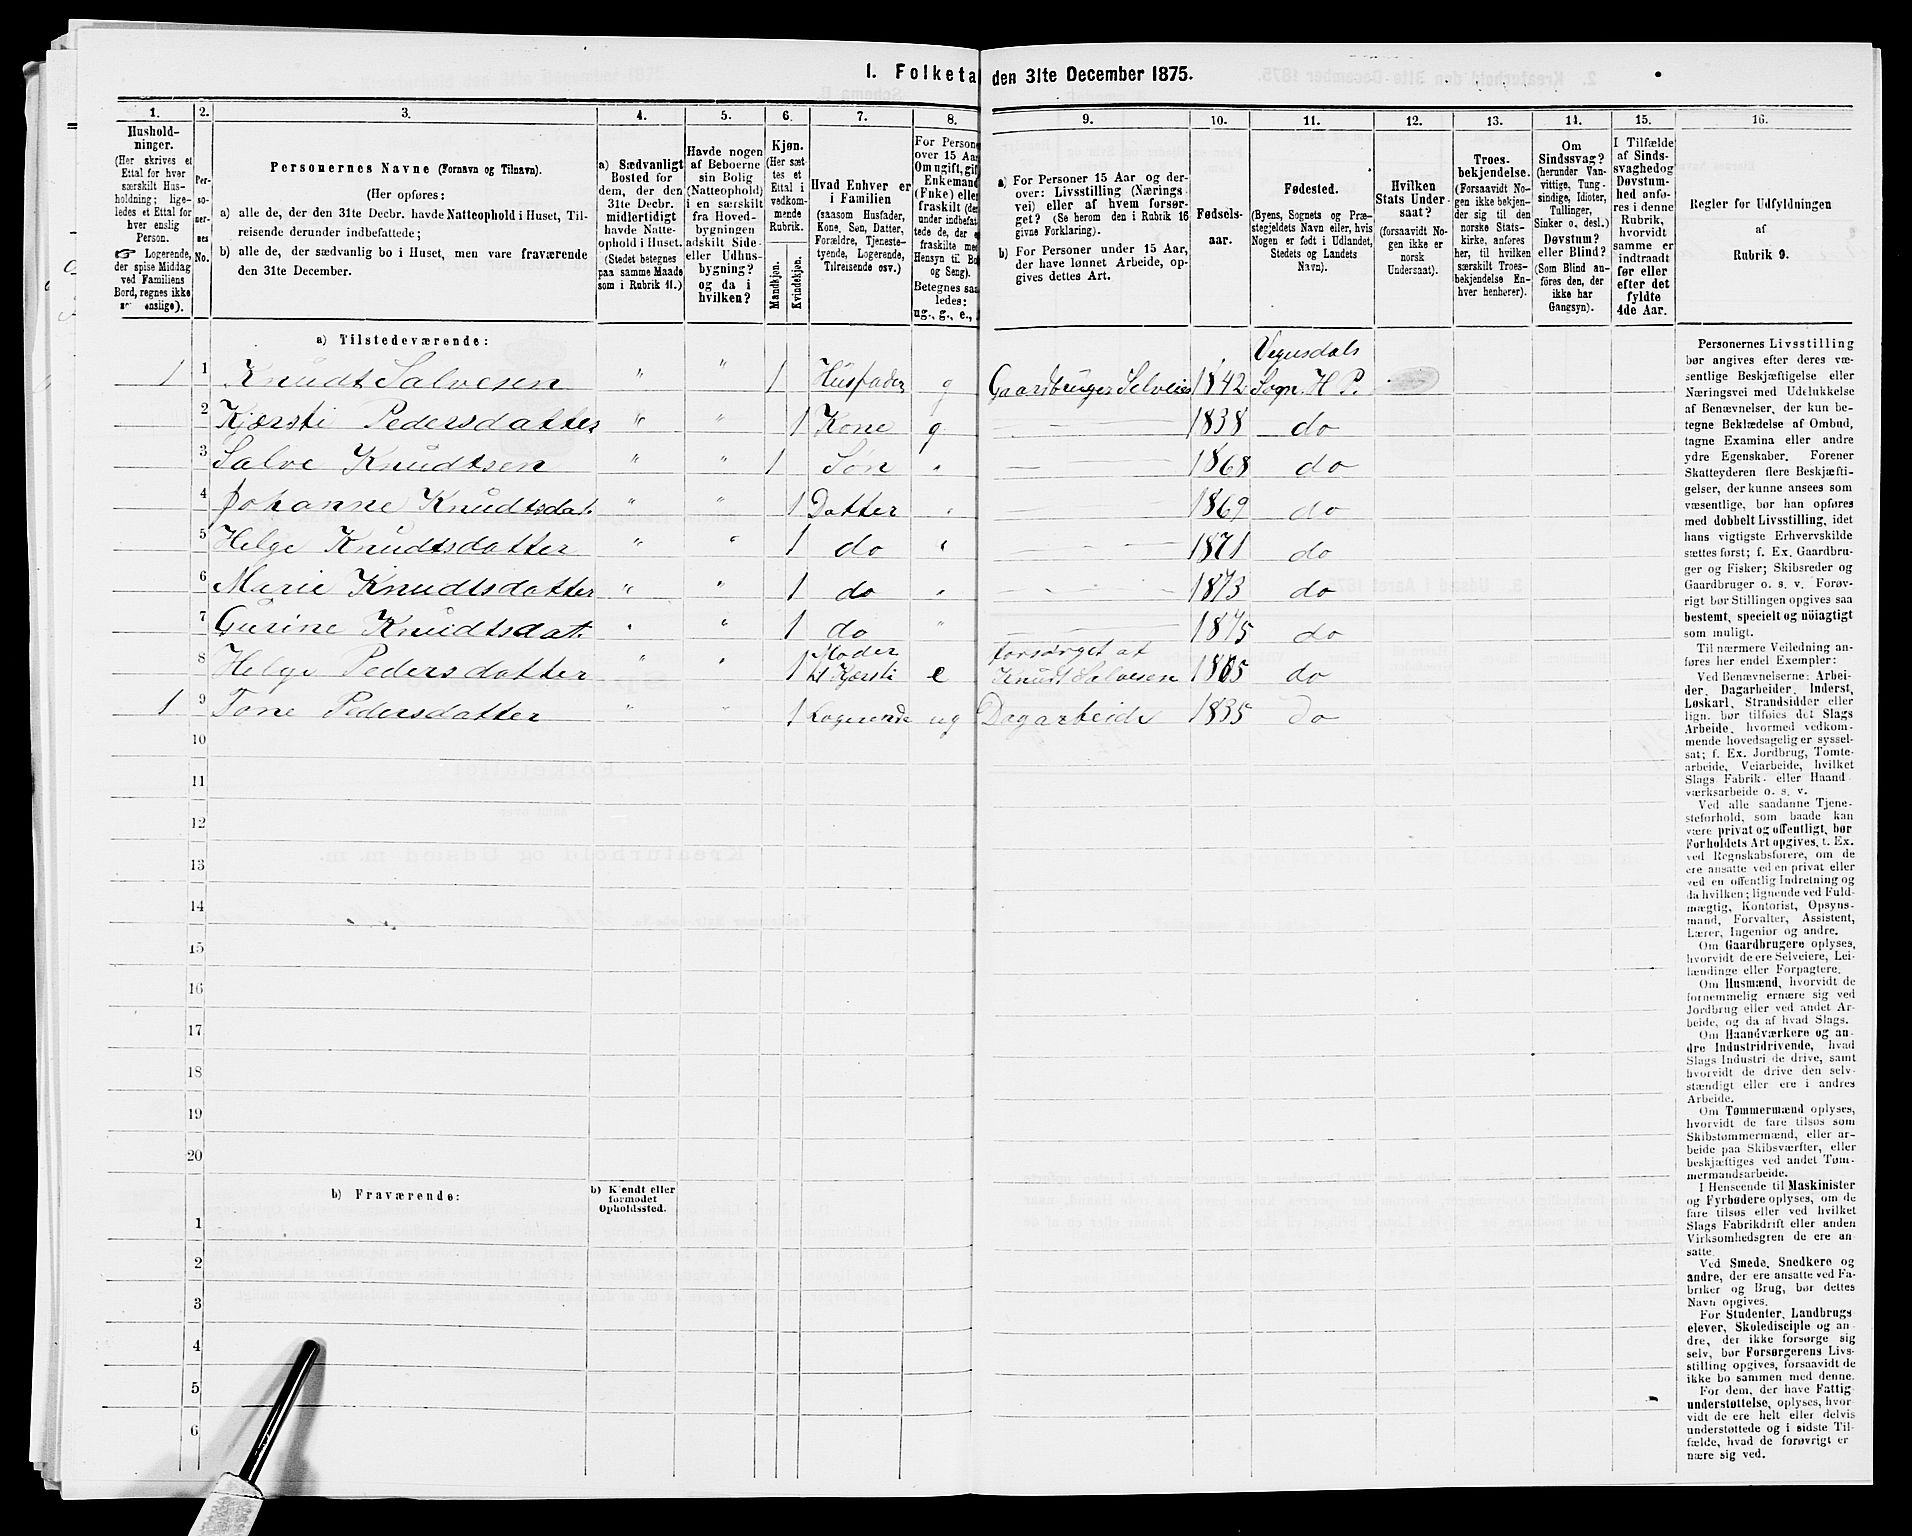 I. Folketa den 31te December 1875.
1. 2. 3. 4. 5. 6. 7. 8. 9. 10. 11. 12. 13. 14. 15. 16.
Hushold-
ninger.
(Her skrives et
Ettal for hver
særskilt Hus-
holdning; lige-
ledes et Ettal for
hver enslig
Person.
☞ Logerende,
der spise Middag
ved Familiens
Bord, regnes ikke
enslige).
Per-
so-
ner-
nes
No.
Personernes Navne (Fornavn og Tilnavn).
(Her opføres:
a) alle de, der den 31te Decbr. havde Natteophold i Huset, Til-
reisende derunder indbefattede;
b) alle de, der sædvanlig bo i Huset, men vare fraværende
den 31te December.
a) Sædvanligt
Bosted for
dem, der den
31te Decbr.
midlertidigt
havde Natte-
ophold i Huset.
(Stedet betegnes
paa samme Maade
som i Rubrik 11.)
Havde nogen
af Beboerne
sin Bolig
(Natteophold)
i en særskilt
fra Hoved-
bygningen
adskilt Side-
eller Udhus-
bygning?
og da i
hvilken?
Kjøn.
(Her sæt-
tes et
Ettal i
vedkom-
mende
Rubrik.
Mandkjøn.
Kvindekjøn.
Hvad Enhver er
i Familien
(saasom Husfader,
Kone, Søn, Datter,
Forældre, Tjeneste-
tyende, Logerende,
Tilreisende osv.)
For Persone
over 15 Aar
Om ugift, gif
Enkemand
(Enke) eller
fraskilt (der
under indbefat-
tede de, der e
fraskilte me
Hensyn til Bo
og Seng).
Betegnes saa
ledes:
ug., g., e.,
a) For Personer 15 Aar og der-
over: Livsstilling (Nærings-
vei) eller af hvem forsør-
get? (Se herom den i Rubrik 16
givne Forklaring).
b) For Personer under 15 Aar,
der have lønnet Arbeide, op-
gives dettes Art.
Fødsels-
aar.
Fødested.
(Byens, Sognets og Præ-
stegjeldets Navn eller, hvis
Nogen er født i Udlandet,
Stedets og Landets
Navn).
Hvilken
Stats Under-
saat?
(forsaavidt No-
gen ikke er
norsk
Undersaat).
Troes-
bekjendelse.
(Forsaavidt No-
gen ikke bekjen-
der sig til den
norske Stats-
kirke, anføres
her, til hvilken
særskilt Troes-
bekjendelse En-
hver henhører).
Om
Sindssvag?
(herunder Van-
vittige, Tung-
sindige, Idioter,
Tullinger,
Sinker o. desl.)
Døvstum?
eller Blind?
(Som Blind an-
føres den, der
ikke har
Gangsyn).
I Tilfælde
af Sinds-
svaghed og
Døvstum-
hed anfø-
res i denne
Rubrik,
hvorvidt
samme er
indtraadt
før eller
efter det
fyldte
4de Aar.
Regler for Udfyldningen
af
Rubrik 9.
a) Tilstedeværende:
1 1 Knudt Salvesen " " 1 Husfader g Gaardbruger Selveier 1842 Vegusdals Sogn H P.
2 Kjærsti Pedersdatter " " 1 Kone g — 1838 do
3 Salve Knudtsen " " 1 Søn " — 1868 do
4 Johanne Knudtsdat. " " 1 Datter " — 1869 do
5 Helge Knudtsdatter " " 1 do " — 1871 do
6 Marie Knudtsdatter " " 1 do " — 1873 do
7 Gurine Knudtsdat. " " 1 do " — 1875 do
8 Helge Pedersdatter " " 1 Moder til Kjærsti e forsørget af Knudt Salvesen do
1 9 Tone Pedersdatter " " 1 Logerende ug Dagarbeide 1835 do
10
11
12
13
14
15
16
17
18
19
20
b) Fraværende:
b) Kjendt eller
formodet
Opholdssted.
1
2
3
4
5
6
Personernes Livsstilling
bør angives efter deres væ-
sentlige Beskjæftigelse eller
Næringsvei med Udelukkelse
af Benævnelser, der kun be-
tegne Beklædelse af Ombud,
tagne Examina eller andre
ydre Egenskaber. Forener
Skatteyderen flere Beskjæfti-
gelser, der kunne ansees som
væsentlige, bør han opføres
med dobbelt Livsstilling, idet
hans vigtigste Erhvervskilde
sættes først; f. Ex. Gaardbru-
ger og Fisker; Skibsreder og
Gaardbruger o. s. v. Forøv-
rigt bør Stillingen opgives saa
bestemt, specielt og nøiagtigt
som muligt.
Til nærmere Veiledning an-
føres her endel Exempler:
Ved Benævnelserne: Arbei-
der, Dagarbeider, Inderst,
Løskarl, Strandsidder eller
lign. bør tilføies det Slags
Arbeide, hvormed vedkom-
mende hovedsagelig er syssel-
sat; f. Ex. Jordbrug, Tomte-
arbeide, Veiarbeide, hvilket
Slags Fabrik- eller Haand-
værksarbeide o. s. v.
Ved alle saadanne Tjene-
steforhold, som baade kan
være privat og offentligt, bør
Forholdets Art opgives, t. Ex.
ved Regnskabsførere, om de
ere ansatte ved en privat eller
ved en offentlig Indretning og
da hvilken; lignende ved Fuld-
mægtig, Kontorist, Opsyns-
mand, Forvalter, Assistent,
Lærer, Ingeniør og andre.
Om Gaardbrugere oplyses,
hvorvidt de ere Selveiere, Lei-
lændinge eller Forpagtere.
Om Husmænd, hvorvidt de
fornemmelig ernære sig ved
Jordbrug eller ved andet Ar-
beide, og da af hvad Slags.
Om Haandværkere og an-
dre Industridrivende, hvad
Slags Industri de drive, samt
hvorvidt de drive den selv-
stændigt eller ere i andres
Arbeide.
Om Tømmermænd oplyses,
hvorvidt de fare tilsøs som
Skibstømmermænd, eller ar-
beide paa Skibsværfter, eller
beskjæftiges ved andet Tøm-
mermandsarbeide.
I Henseende til Maskinister
og Fyrbødere oplyses, om de
fare tilsøs eller ved hvilket
Slags Fabrikdrift eller anden
Virksomhedsgren de ere an-
satte.
Ved Smede, Snedkere og
andre, der ere ansatte ved Fa-
briker og Brug, bør dettes
Navn opgives.
For Studenter, Landbrugs-
elever, Skoledisciple og an-
dre, der ikke forsørge sig
selv, bør Forsørgerens Livs-
stilling opgives, forsaavidt de
ikke bo sammen med denne.
For dem, der have Fattig-
understøttelse, oplyses, hvor-
vidt de ere helt eller delvis
understøttede og i sidste Til-
fælde, hvad de forøvrigt er-
nære sig ved.